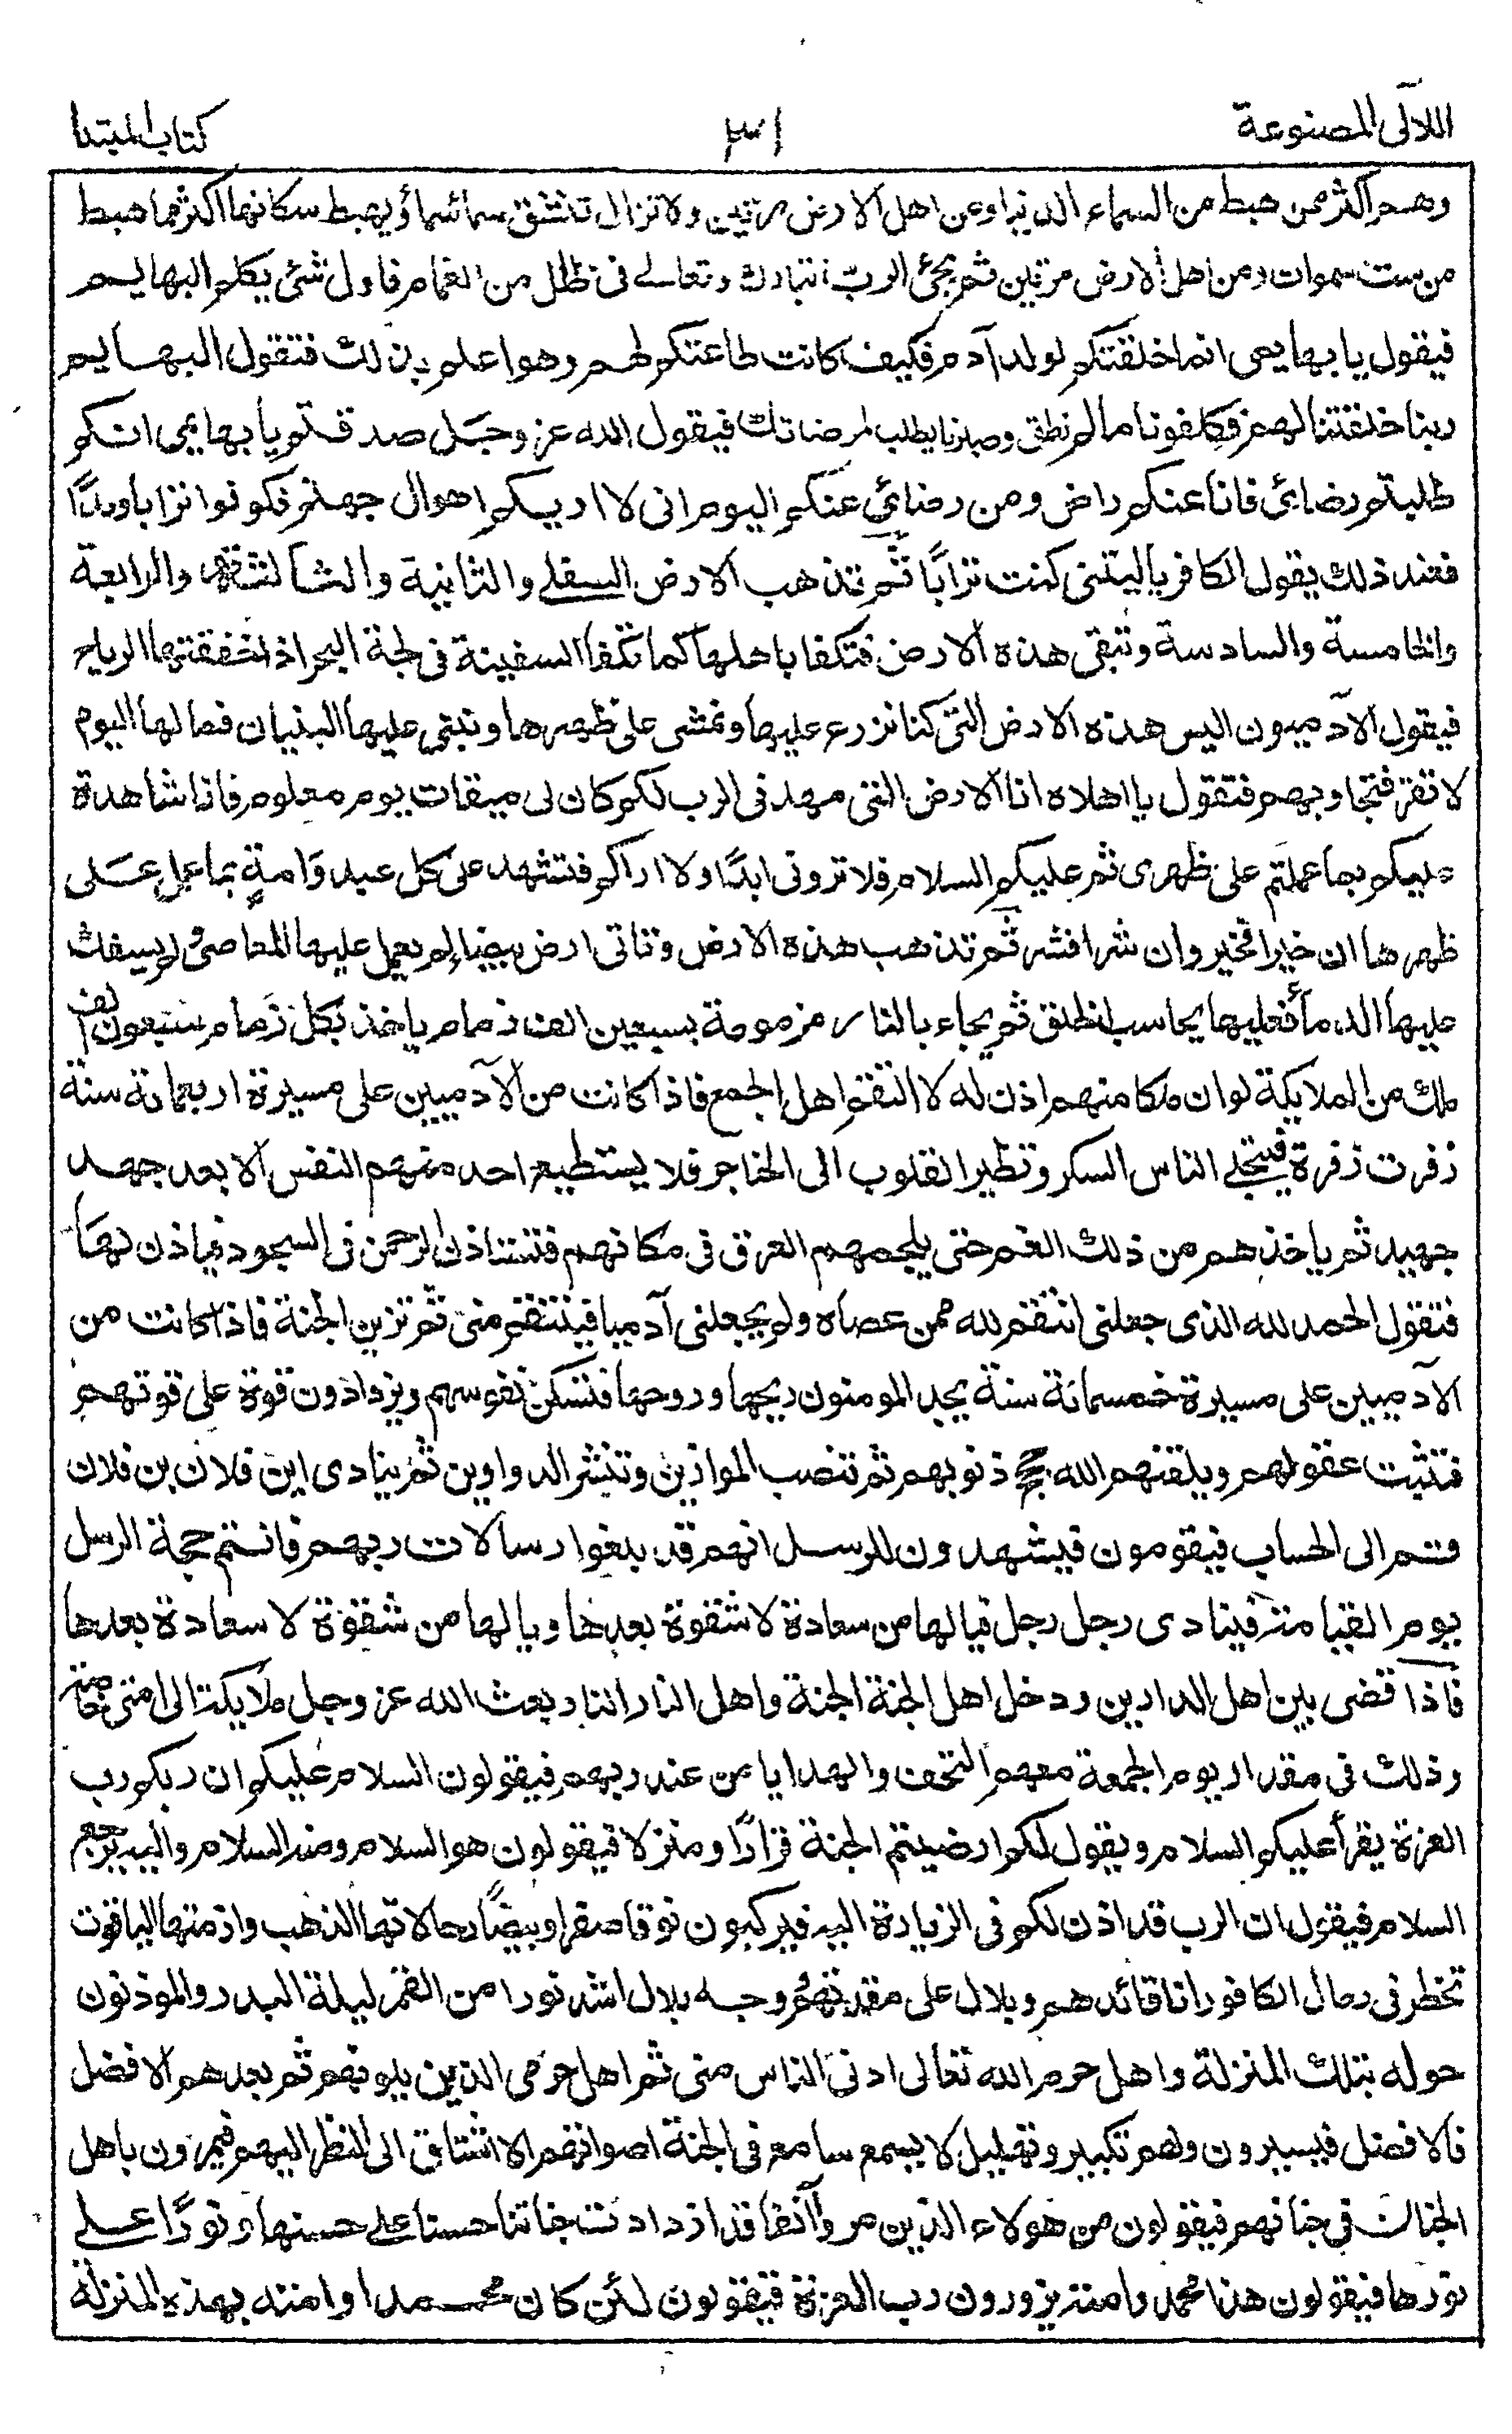 اللآلى المصنوعة
٣١
كتاب المبتدا
وهم اكثر ممن هبط من السماء الدنيا ومن اهل الارض مرتين ولا تزال تنشق سماء سماء ويهبط سكانها اكثر مما هبط
من ست سموات ومن اهل الارض مرتين ثم يجئ الرب تبارك وتعالى فى ظلل من الغمام فاول شئ يكلم البهايم
فيقول يا بهايمى انما خلقتكم لولد آدم فكيف كانت طاعتكم لهم وهو اعلم بذلك فتقول البهايم
ربنا خلقتنا لهم فكلفونا ما لم نطق وصبرنا بطلب لمرضاتك فيقول الله عز وجل صدقتم يا بهايمى انكم
طلبتم رضائى فانا عنكم راض ومن رضائى عنكم اليوم انى لا اريكم اهوال جهنم فكونوا ترابا ومدًا
فعند ذلك يقول الكافر ياليتنى كنت ترابًا ثم تذهب الارض السفلے والثانية والثالثة والرابعة
والخامسة والسادسة وتبقى هذه الارض فتكفا باهلها كما تكفا السفينة فى لجة البحر اذا خفقتها الرياح
فيقول الآدميون اليس هذه الارض التى كنا نزرع عليها ونمشى على ظهرها ونبتنى عليها البنيان فما لها اليوم
لا تقر فتجاوبهم فتقول يا اهلاه انا الارض التى مهدنى الرب لكم كان لى ميقات يوم معلوم فانا شاهدة
عليكم بما عملتم على ظهرى ثم عليكم السلام فلا ترونى ابدًا ولا اراكم فتشهد على كل عبد وامةٍ بما عمل عَلى
ظهرها ان خيرا فخير وان شرا فشر ثم تذهب هذه الارض وتاتى ارض بيضاء لم يعمل عليها المعاصى ولم يسفك
عليها الدماء فعليها يحاسب الخلق ثم يجاء بالنار مزمومة بسبعين الف زمام ياخذ بكل زمام سبعون الف
ملك من الملايكة لو ان ملكا منهم اذن له لا التقم اهل الجمع فاذا كانت من الآدميين على مسيرة اربعمائة سنة
زفرت زفرة فيتجلے الناس السكر وتطير القلوب الى الحناجر فلا يستطيع احد منهم النفس الا بعد جهد
جهيد ثم ياخذهم من ذلك الغم حتى يلجمهم العرق فى مكانهم فتستاذن الرحمن فى السجود فياذن لها
فتقول الحمد لله الذى جعلنى انتقم لله ممن عصاه ولم يجعلنى آدميا فينتقم منى ثم تزين الجنة فاذا كانت من
الآدميين على مسيرة خمسمائة سنة يجد المومنون ريحها وروحها فتسكن نفوسهم ويزدادون قوة على قوتهم
فتثبت عقولهم ويلقنهم الله حجج ذنوبهم ثم تنصب الموازين وتنشر الدواوين ثم ينادى اين فلان بن فلان
قم الى الحساب فيقومون فيشهدون للرسل انهم قد بلغوا رسالات ربهم فانتم حجة الرسل
يوم القيامة فينادى رجل رجل فيالها من سعادة لا شقوة بعدها ويالها من شقوة لا سعادة بعدها
فاذا قضى بين اهل الدارين ودخل اهل الجنة الجنة واهل النار النار بعث الله عز وجل ملايكة الى امتى خاصة
وذلك فى مقدار يوم الجمعة معهم التحف والهدايا من عند ربهم فيقولون السلام عليكم ان ربكم رب
العزة يقرأ عليكم السلام ويقول لكم ارضيتم الجنة قرارًا ومنزلا فيقولون هو السلام ومنه السلام واليه يرجع
السلام فيقول ان الرب قد اذن لكم فى الزيارة اليه فيركبون نوقا صفرا وبيضًا رحالاتها الذهب وازمتها الياقوت
تخطر فى رمال الكافور انا قائدهم وبلال على مقدمتهم ووجه بلال اشد نورا من القمر ليلة البدر والموذنون
حوله بتلك المنزلة واهل حرم الله تعالى ادنى الناس منى ثم اهل حرمى الذين يلونهم ثم بعدهم الافضل
فالافضل فيسيرون ولهم تكبير وتهليل لا يسمع سامع فى الجنة اصواتهم الا اشتاق الى النظر اليهم فيمرون باهل
الجنان فى جنانهم فيقولون من هولاء الذين مروا آنفا قد ازدادت جناتنا حسنا علے حسنها ونورًا علے
نورها فيقولون هذا محمد وامته يزورون رب العزة فيقولون لئن كان محمدا وامته بهذه المنزلة